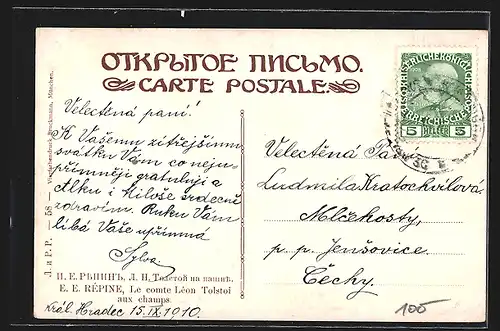 ОТКРЫТОЕ ПИСЬМО.
CARTE POSTALE.
Velectěná paní!
K Vašemu zítřejšímu
svátku Vám co neju-
přímněji gratuluji a
Alku i Miloše srdečně
zdravím. Ruku Vám
líbá Vaše upřímná
Sylva
И. Е. РѢПИНЪ, Л. Н. Толстой на пашнѣ.
E. E. RÉPINE, Le comte Léon Tolstoi
aux champs.
Král. Hradec 15. IX. 1910.
Л и Р Р. — 58 —
München.
Velectěná Paní
Ludmila Kratochvílová
Mlékosrby,
p. p. Jenšovice.
Čechy.
5 HELLER 5
100